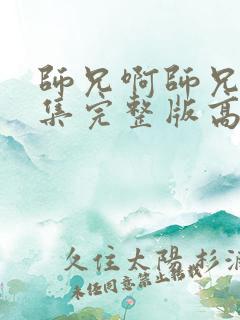 師兄啊師兄
集完整版高
久住太陽杉浦
未经同意禁止转载